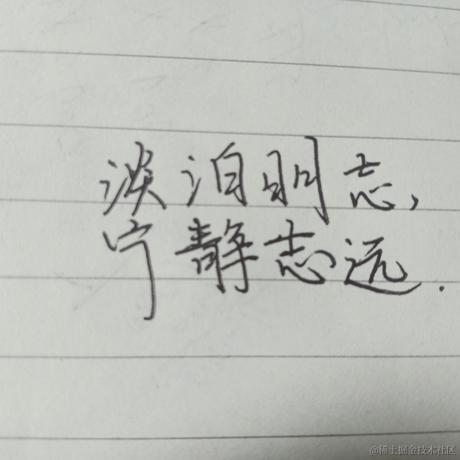 淡泊明志,
宁静志远.
@稀土掘金技术社区